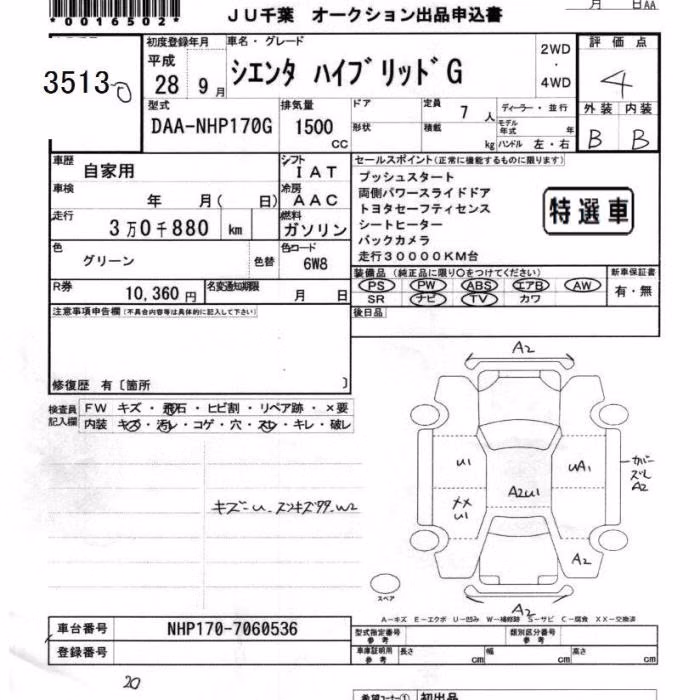 *00016502*
JU千葉 オークション出品申込書
月 日AA
3513
初度登録年月
平成
28 9月
車名・グレード
シエンタ ハイブリッドG
2WD
・
4WD
評価点
4
外装 内装
B B
型式
DAA-NHP170G
排気量
1500
CC
ドア
形状
定員 7 人
積載 kg
ディーラー・並行
モデル年式 年
ハンドル 左・右
車歴
自家用
シフト
IAT
車検
年 月( 日)
冷房
AAC
走行
3万0千880 km
燃料
ガソリン
色
グリーン
色替
色コード
6W8
R券
10,360円
名変通知期限
月 日
セールスポイント(正常に機能するものに限ります)
プッシュスタート
両側パワースライドドア
トヨタセーフティセンス
シートヒーター
バックカメラ
走行30000KM台
特選車
装備品(純正品に限り○をつけてください)
PS PW ABS エアB AW
SR ナビ TV カワ
新車保証書
有・無
後日品
注意事項申告欄(不具合内容等は具体的に記入して下さい)
修復歴 有〔箇所 〕
検査員
記入欄
FW キズ・飛石・ヒビ割・リペア跡・×要
内装 キズ・汚レ・コゲ・穴・スレ・キレ・破レ
A2
U1
UA1
A2U1
U1
カバーズレ
A2
A2
A2
スペア
A-キズ E-エクボ U-凹み W-補修跡 S-サビ C-腐食 XX-交換済
車台番号
NHP170-7060536
登録番号
型式指定番号
参考
類別区分番号
参考
車庫証明用
参考
長さ cm
幅 cm
高さ cm
20
希望コーナー① 初出品